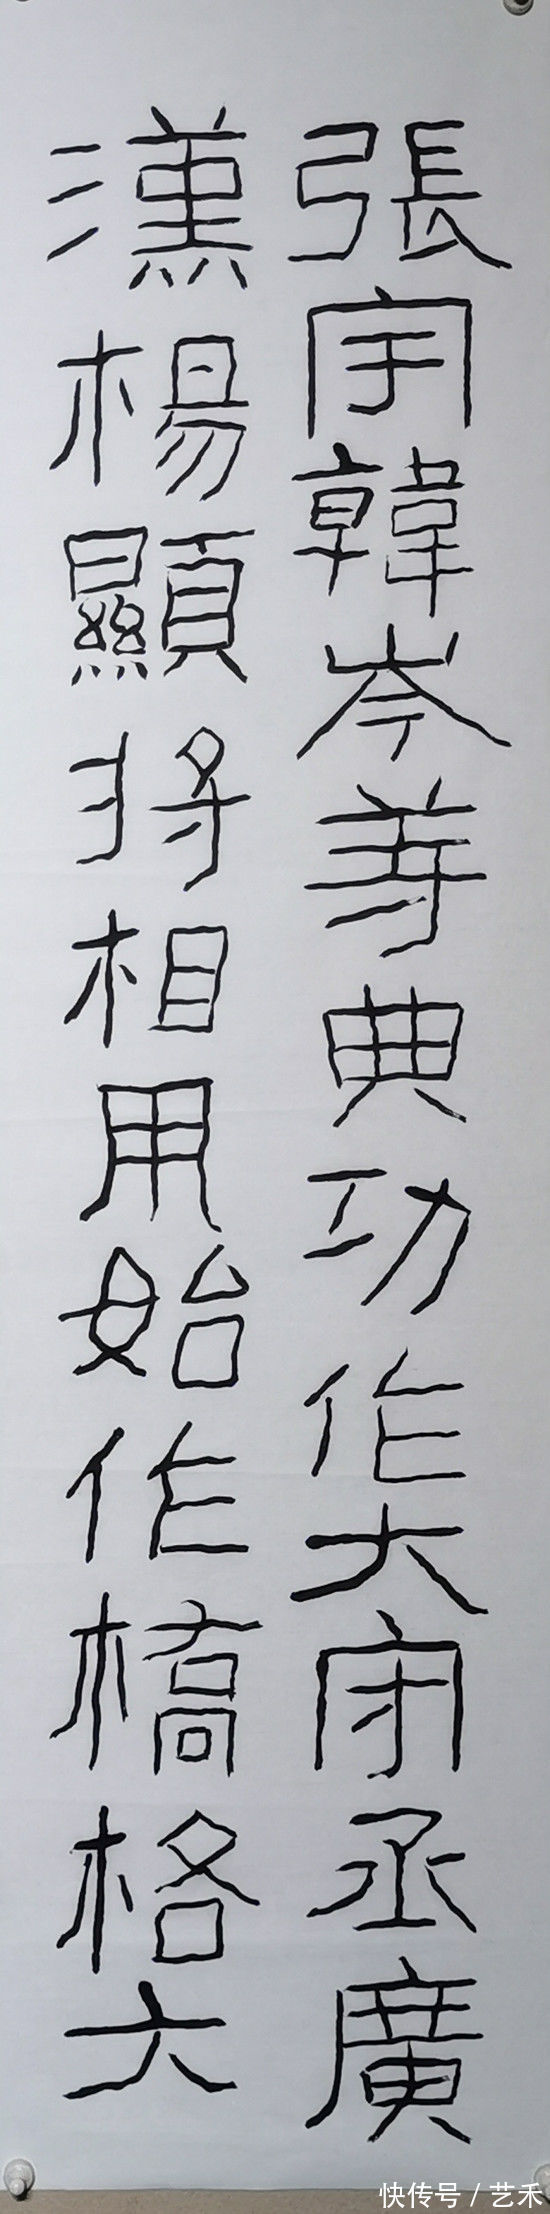 張宇韓岑等典功作大守丞廣
漢楊顯將相用始作橋格六
快传号/艺禾